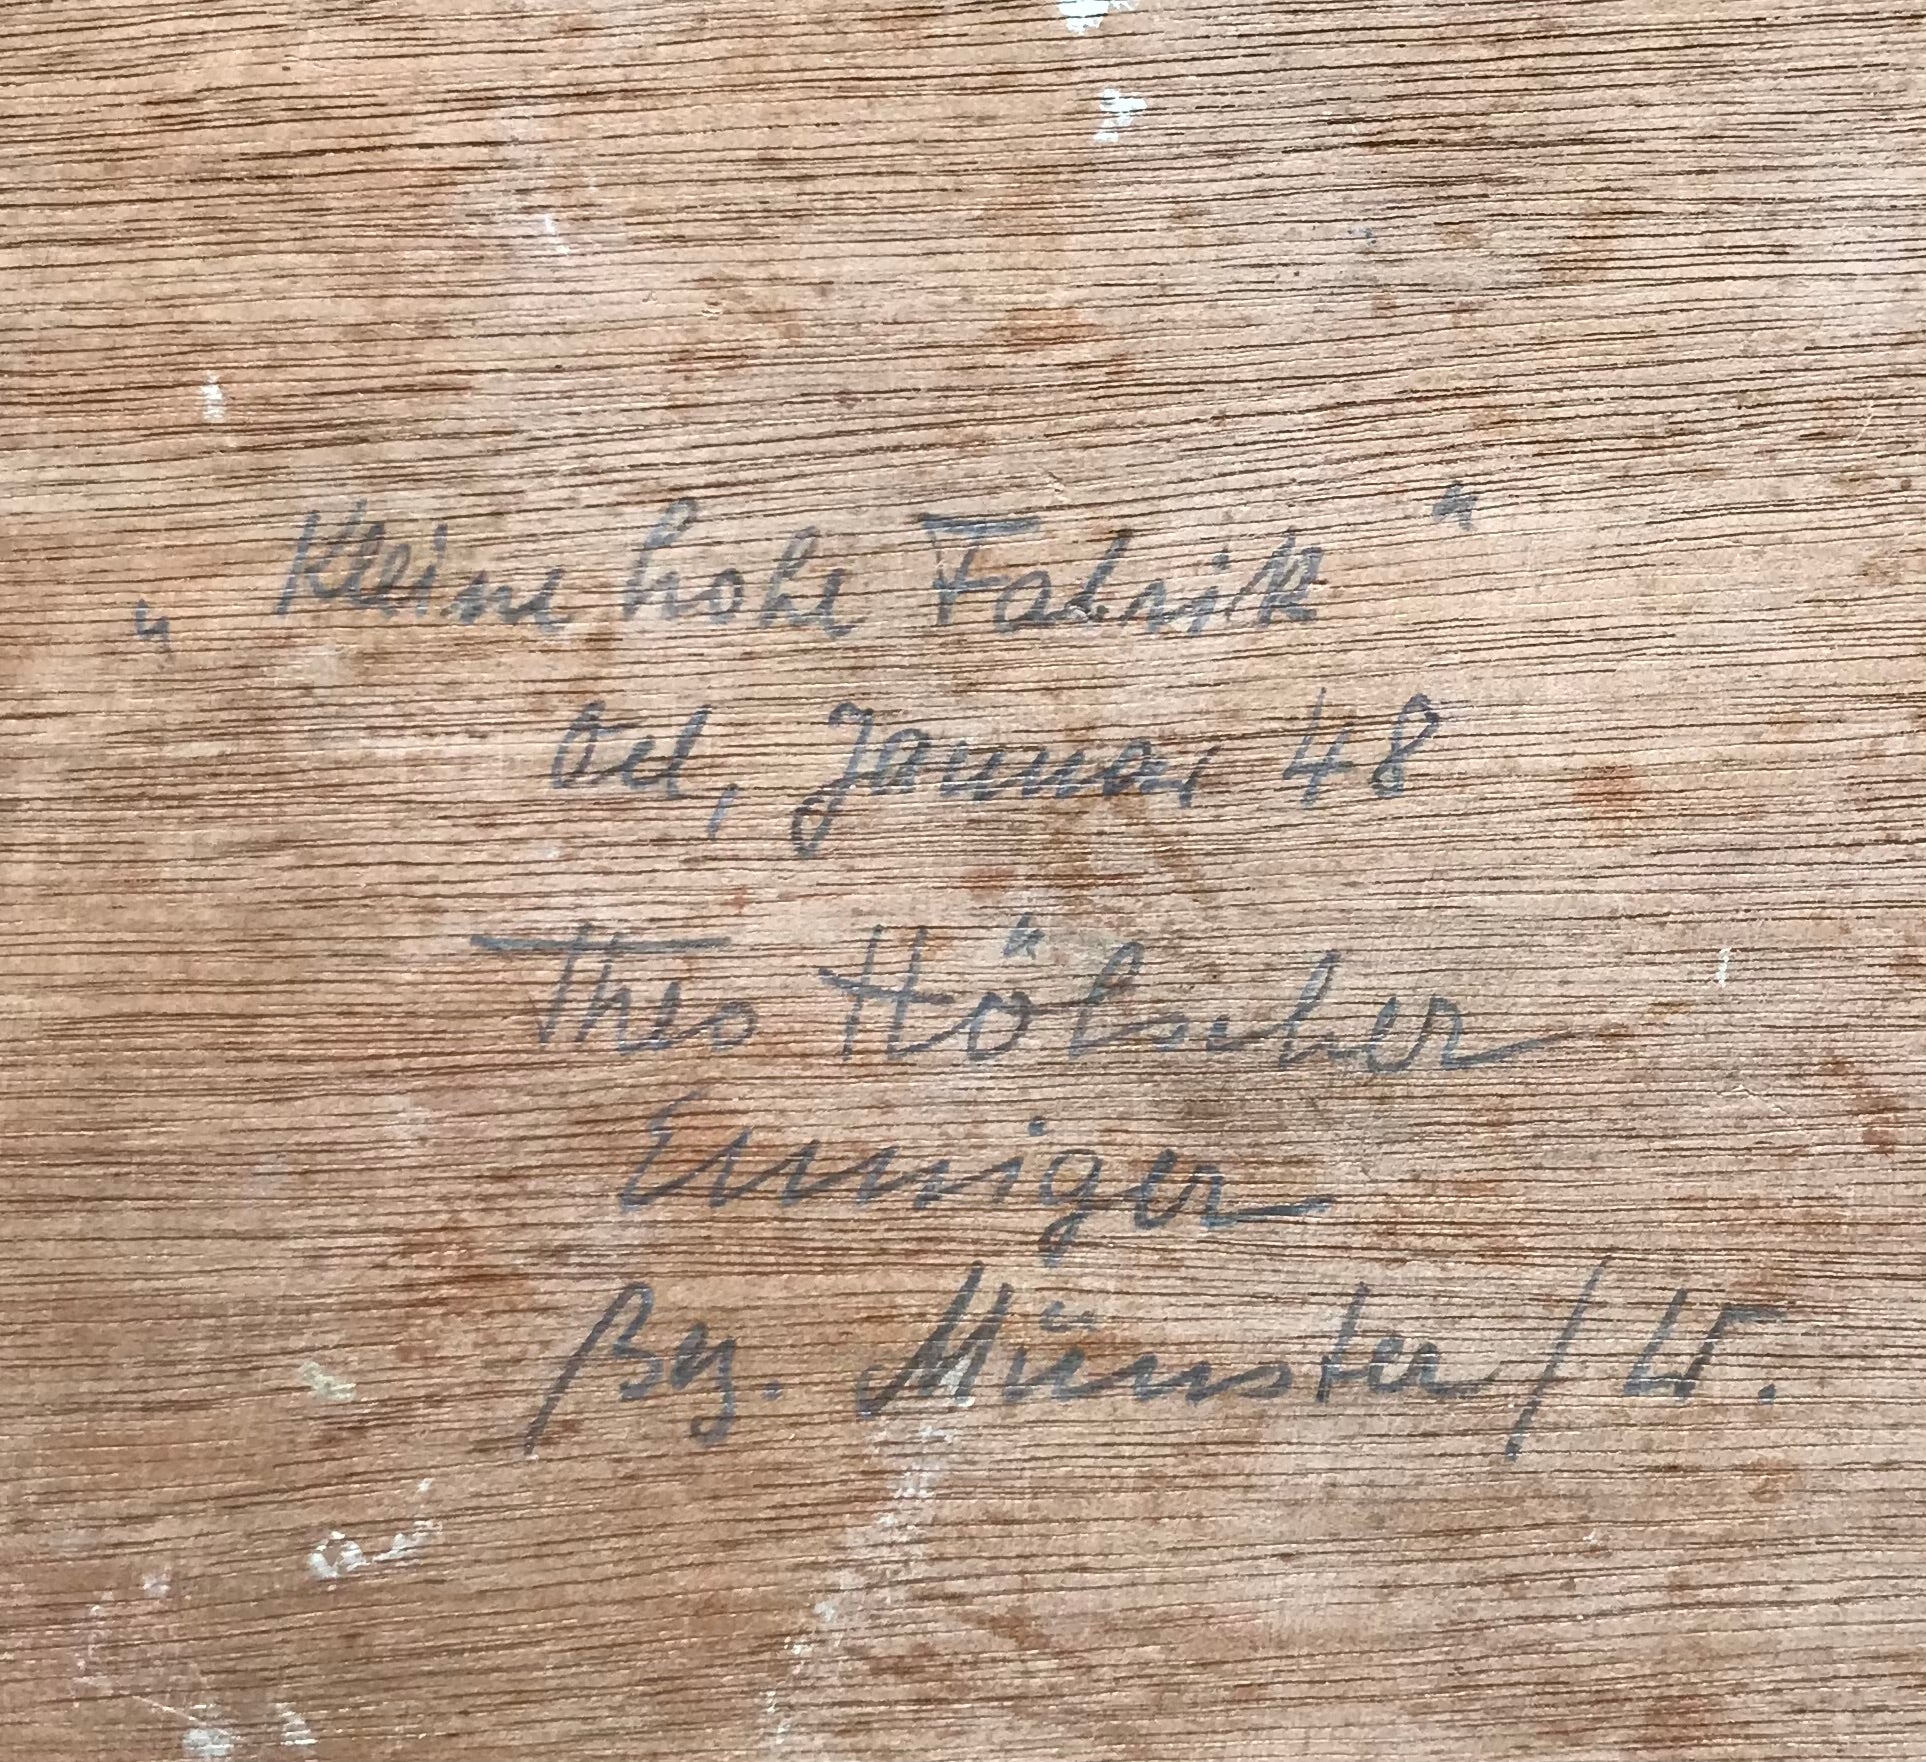 „Kleine hohe Fabrik“
Oel, Januar 48
Theo Hölscher
Enniger
Bez. Münster/W.